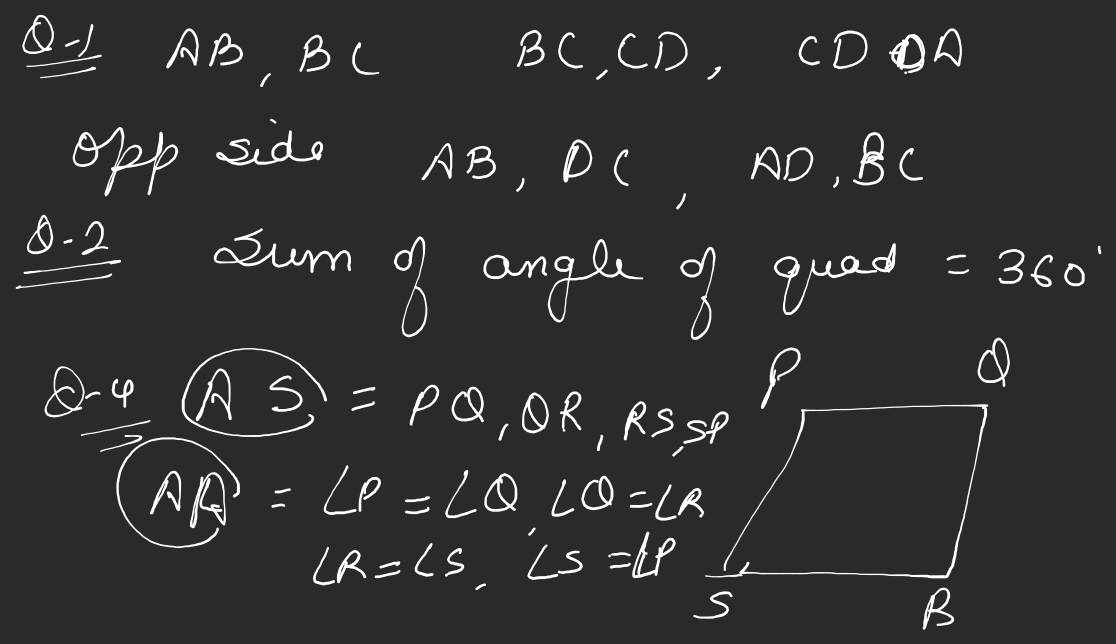 Q-1 AB, BC BC, CD, CD DA
Opp side AB, DC, AD, BC
Q-2 Sum of angle of quad = 360°
Q-4 AS = PQ, QR, RS, SP
AA = ∠P = ∠Q, ∠Q = ∠R
∠R = ∠S, ∠S = ∠P
P Q
S R